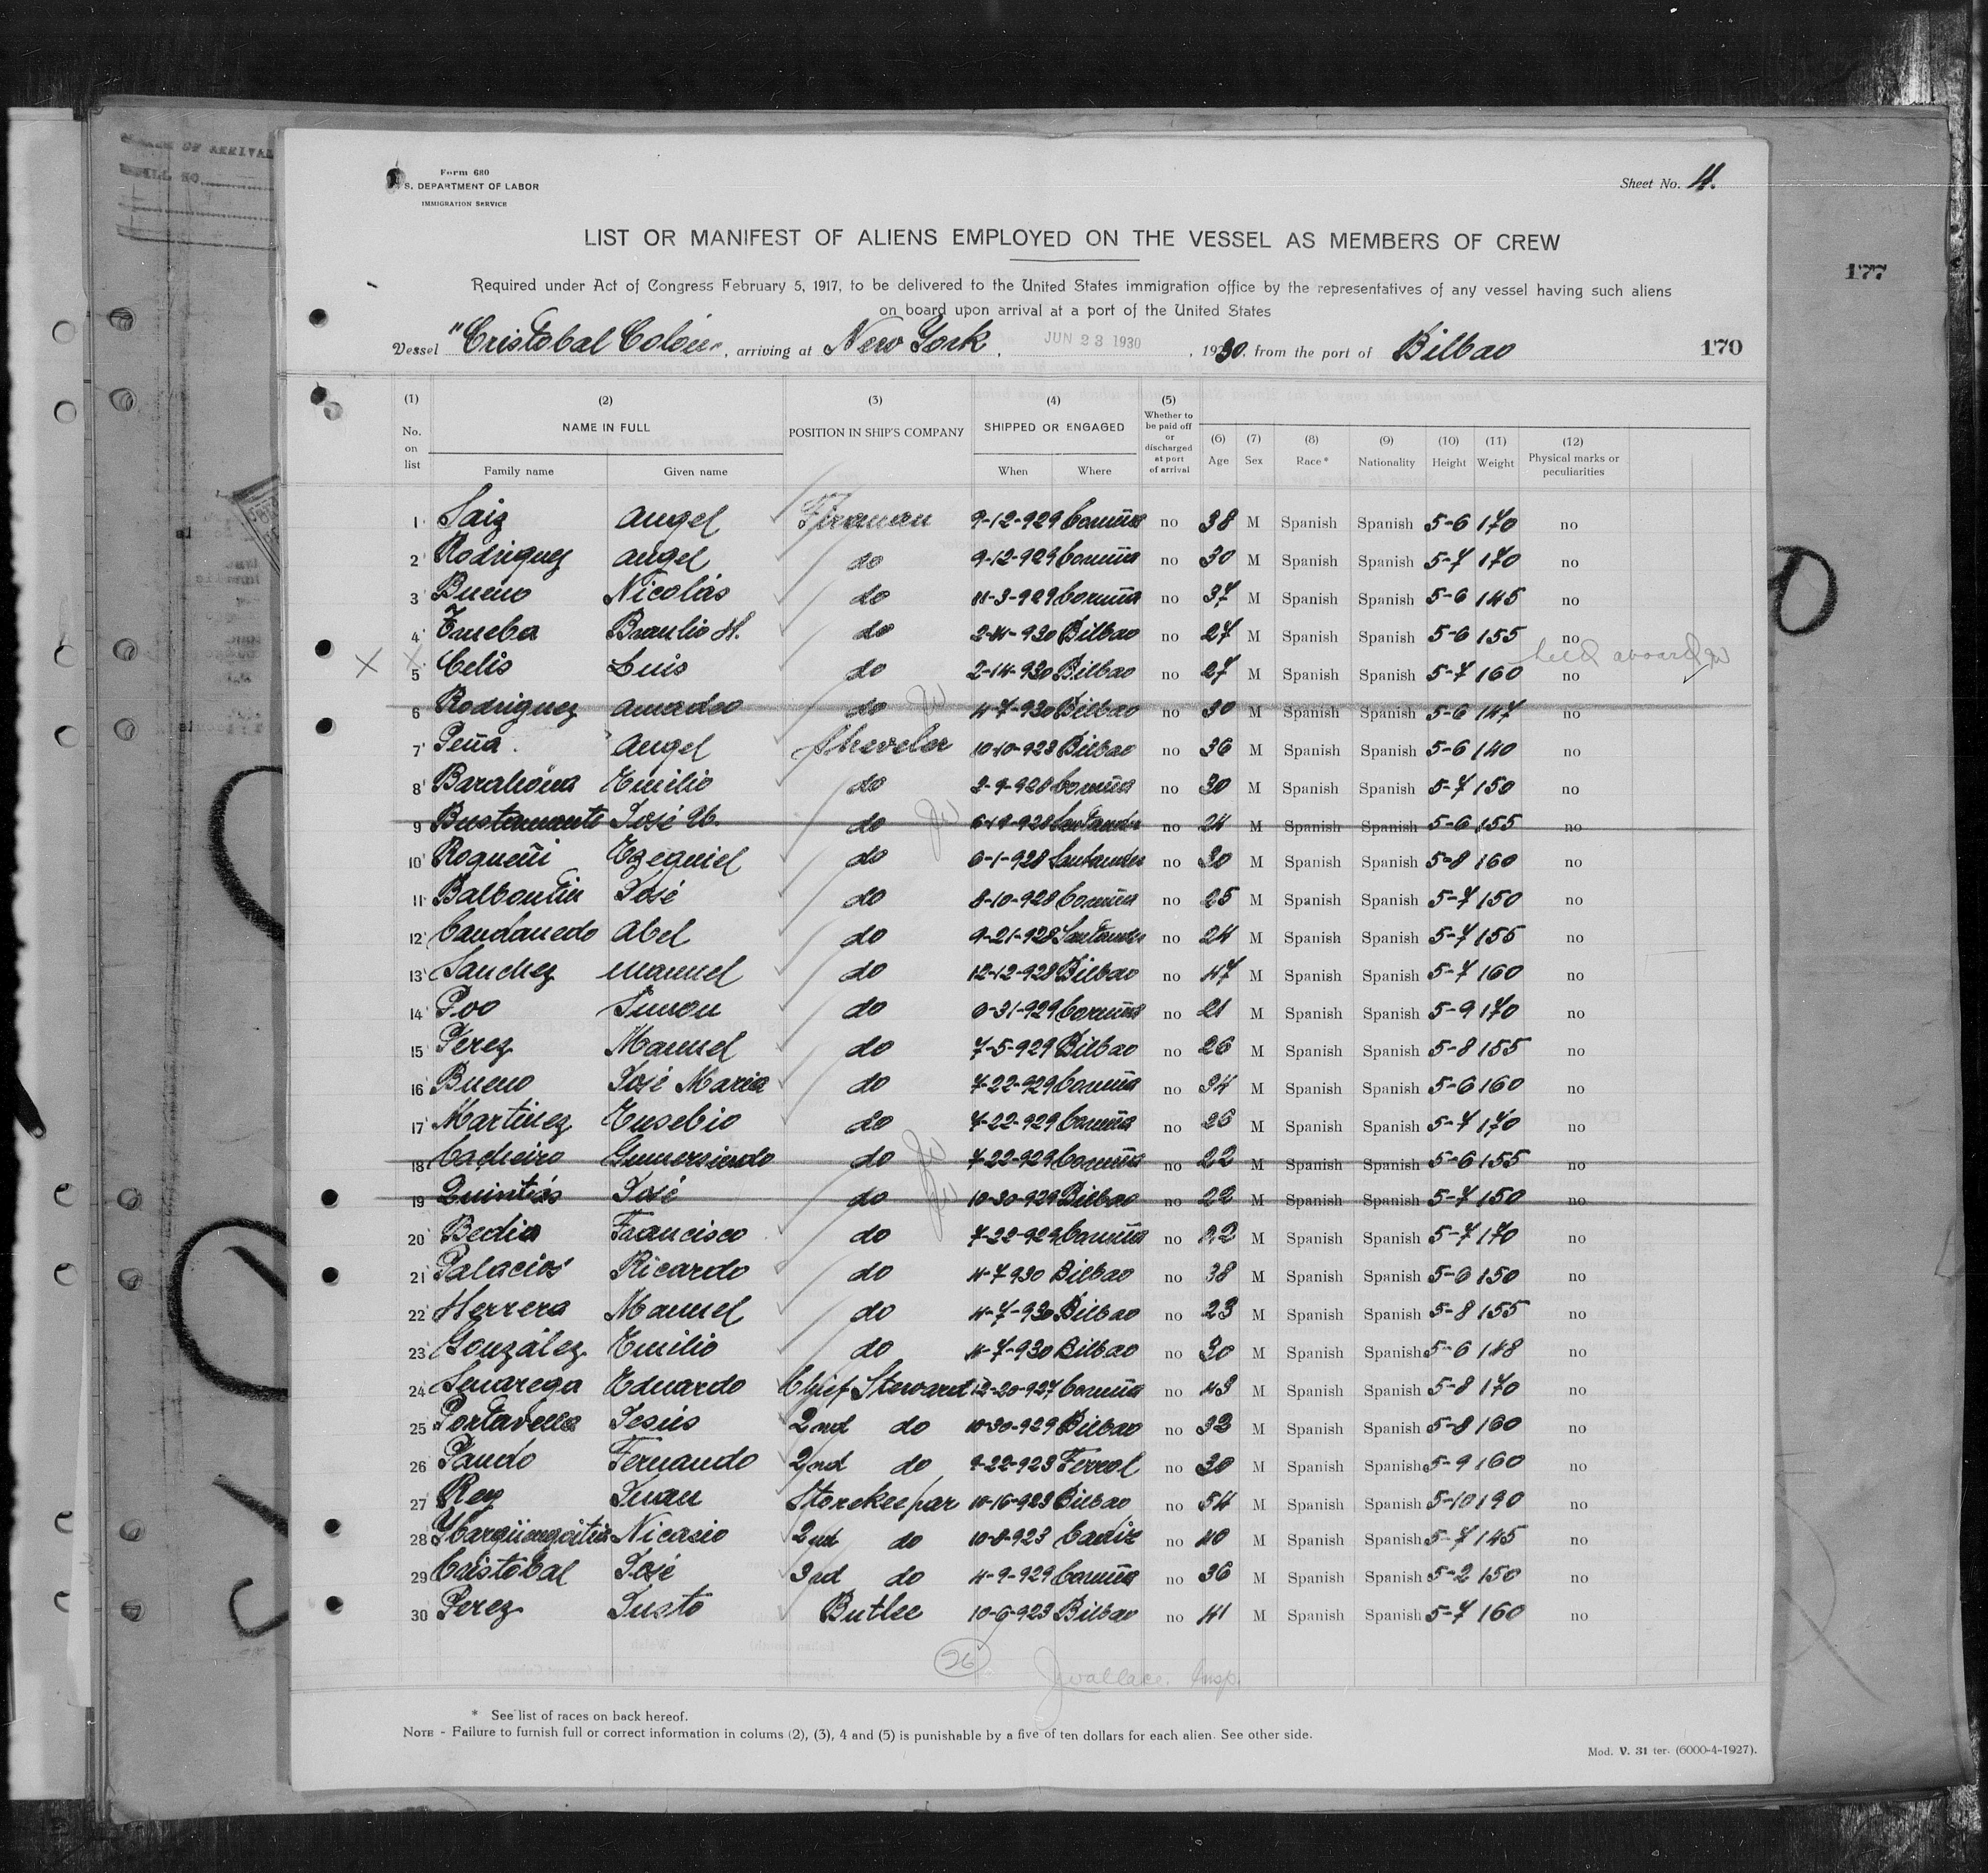 Form 680
S. DEPARTMENT OF LABOR
IMMIGRATION SERVICE
Sheet No. 4.
LIST OR MANIFEST OF ALIENS EMPLOYED ON THE VESSEL AS MEMBERS OF CREW
177
Required under Act of Congress February 5, 1917, to be delivered to the United States immigration office by the representatives of any vessel having such aliens
on board upon arrival at a port of the United States
Vessel "Cristobal Colón", arriving at New York, JUN 23 1930, 1930. from the port of Bilbao 170
(1) No. on list (2) NAME IN FULL Family name Given name (3) POSITION IN SHIP'S COMPANY (4) SHIPPED OR ENGAGED When Where (5) Whether to be paid off or discharged at port of arrival (6) Age (7) Sex (8) Race* (9) Nationality (10) Height (11) Weight (12) Physical marks or peculiarities
1 Saiz Angel Fireman 9-12-929 Coruña no 38 M Spanish Spanish 5-6 170 no
2 Rodriguez Angel do 9-12-929 Coruña no 30 M Spanish Spanish 5-7 170 no
3 Bueno Nicolás do 11-3-929 Coruña no 37 M Spanish Spanish 5-6 145 no
4 Braulio M. do 930 Bilbao no 27 M Spanish Spanish 5-6 155 no
held aboard JW
5 Celis Luis do 2-14-930 Bilbao no 27 M Spanish Spanish 5-7 160 no
6 Rodriguez Amadeo do 4-7-930 Bilbao no 30 M Spanish Spanish 5-6 147 no
7 Peña Angel Sheveler 10-10-923 Bilbao no 36 M Spanish Spanish 5-6 140 no
8 Barahona Emilio do 928 Coruña no 30 M Spanish Spanish 5-7 150 no
9 Bustamante José do 928 Santander no 24 M Spanish Spanish 5-6 155 no
10 Roqueñi Ezequiel do 928 Santander no 30 M Spanish Spanish 5-8 160 no
11 Balbontin José do 8-10-928 Coruña no 25 M Spanish Spanish 5-7 150 no
12 Candanedo Abel do 9-21-928 Santander no 24 M Spanish Spanish 5-7 155 no
13 Sanchez Manuel do 12-12-928 Bilbao no 47 M Spanish Spanish 5-7 160 no
14 Poo Simon do 929 Coruña no 21 M Spanish Spanish 5-9 170 no
15 Perez Manuel do 7-5-929 Bilbao no 26 M Spanish Spanish 5-8 155 no
16 Bueno José Maria do 7-22-929 Coruña no 34 M Spanish Spanish 5-6 160 no
17 Martinez Eusebio do 7-22-929 Coruña no 26 M Spanish Spanish 5-7 170 no
18 Cacheiro Gumersindo do 7-22-929 Coruña no 22 M Spanish Spanish 5-6 155 no
19 Quintás José do 10-30-929 Bilbao no 22 M Spanish Spanish 5-7 150 no
20 Bedia Francisco do 7-22-929 Coruña no M Spanish Spanish 5-7 170 no
21 Palacios Ricardo do 4-7-930 Bilbao no 38 M Spanish Spanish 5-6 150 no
22 Herrera Manuel do 4-7-930 Bilbao no 23 M Spanish Spanish 5-8 155 no
23 González Emilio do 4-7-930 Bilbao no 30 M Spanish Spanish 5-6 148 no
24 Senarega Eduardo Chief Steward 12-20-927 Coruña no 43 M Spanish Spanish 5-8 170 no
25 Portavella Jesús 2nd do 10-30-929 Bilbao no 32 M Spanish Spanish 5-8 160 no
26 Pando Fernando 2nd do 9-22-923 Ferrol no 30 M Spanish Spanish 5-9 160 no
27 Rey Juan Storekeepar 10-16-923 Bilbao no 54 M Spanish Spanish 5-10 190 no
28 Nicasio 2nd do 10-8-923 Cadiz no 40 M Spanish Spanish 5-7 145 no
29 Cristóbal José 3rd do 4-9-929 Coruña no 36 M Spanish Spanish 5-2 150 no
30 Perez Justo Butlee 10-6-923 Bilbao no 41 M Spanish Spanish 5-7 160 no
26 JWallace. Insp.
* See list of races on back hereof.
NOTE - Failure to furnish full or correct information in colums (2), (3), 4 and (5) is punishable by a five of ten dollars for each alien. See other side.
Mod. V. 31 ter. (6000-4-1927).